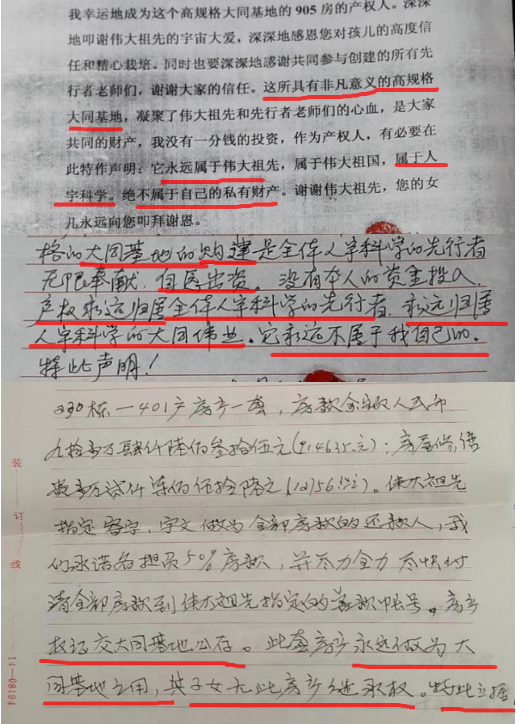 我幸运地成为这个高规格大同基地的 905 房的产权人。深深
地叩谢伟大祖先的宇宙大爱，深深地感恩您对孩儿的高度信
任和精心栽培。同时也要深深地感谢共同参与创建的所有先
行者老师们，谢谢大家的信任。这所具有非凡意义的高规格
大同基地，凝聚了伟大祖先和先行者老师们的心血，是大家
共同的财产，我没有一分钱的投资，作为产权人，有必要在
此特作声明：它永远属于伟大祖先，属于伟大祖国，属于人
宇科学。绝不属于自己的私有财产。谢谢伟大祖先，您的女
儿永远向您叩拜谢恩。
格的大同基地的购建是全体人宇科学的先行者
无限奉献，自愿出资。没有本人的资金投入，
产权永远归属全体人宇科学的先行者，永远归属
人宇科学的大同伟业。它永远不属于我自己的。
特此声明！
330栋一401户房产一套，房款余额人民币
伟大祖先
指定 宇文做为全部房款的还款人，我
们承诺各担负50%房款，并尽力全力尽快付
清全部房款到伟大祖先指定的帐号。房产
权证交大同基地公存。此套房产永远做为大
同基地之用，其子女无此房产继承权。特此立据
装
订
线
14—08194